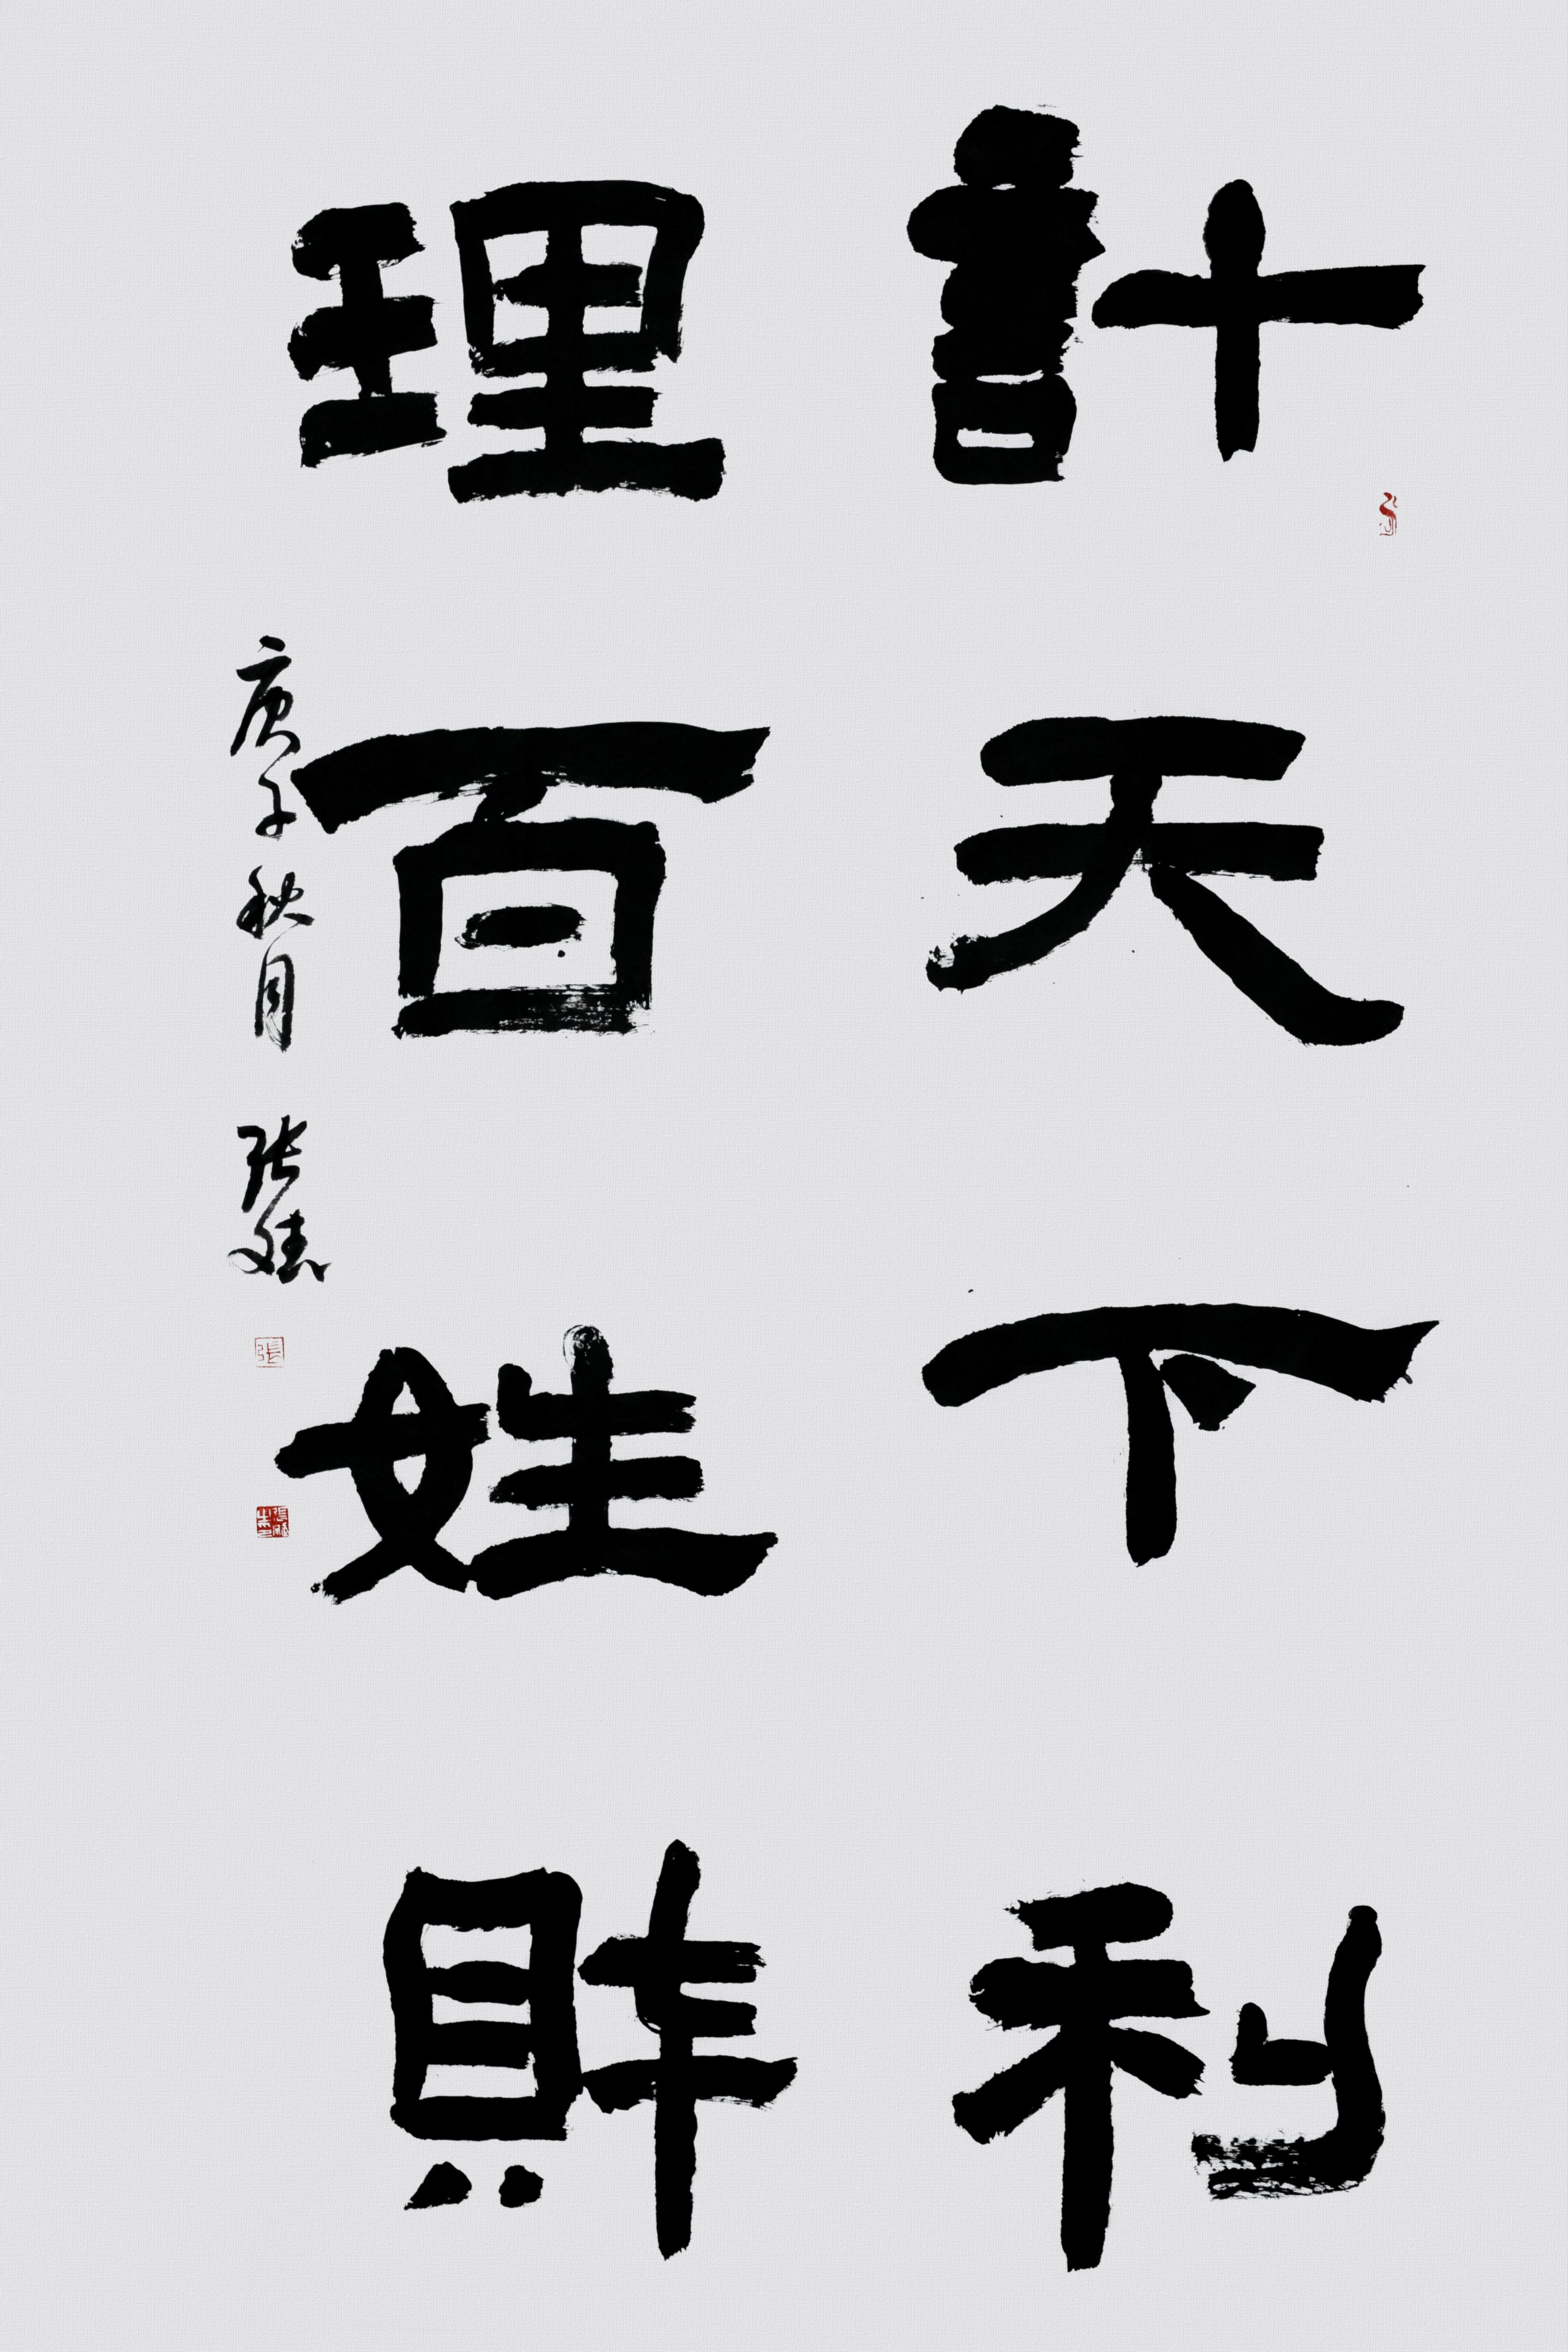 計天下利
理百姓財
庚子秋月 張
張